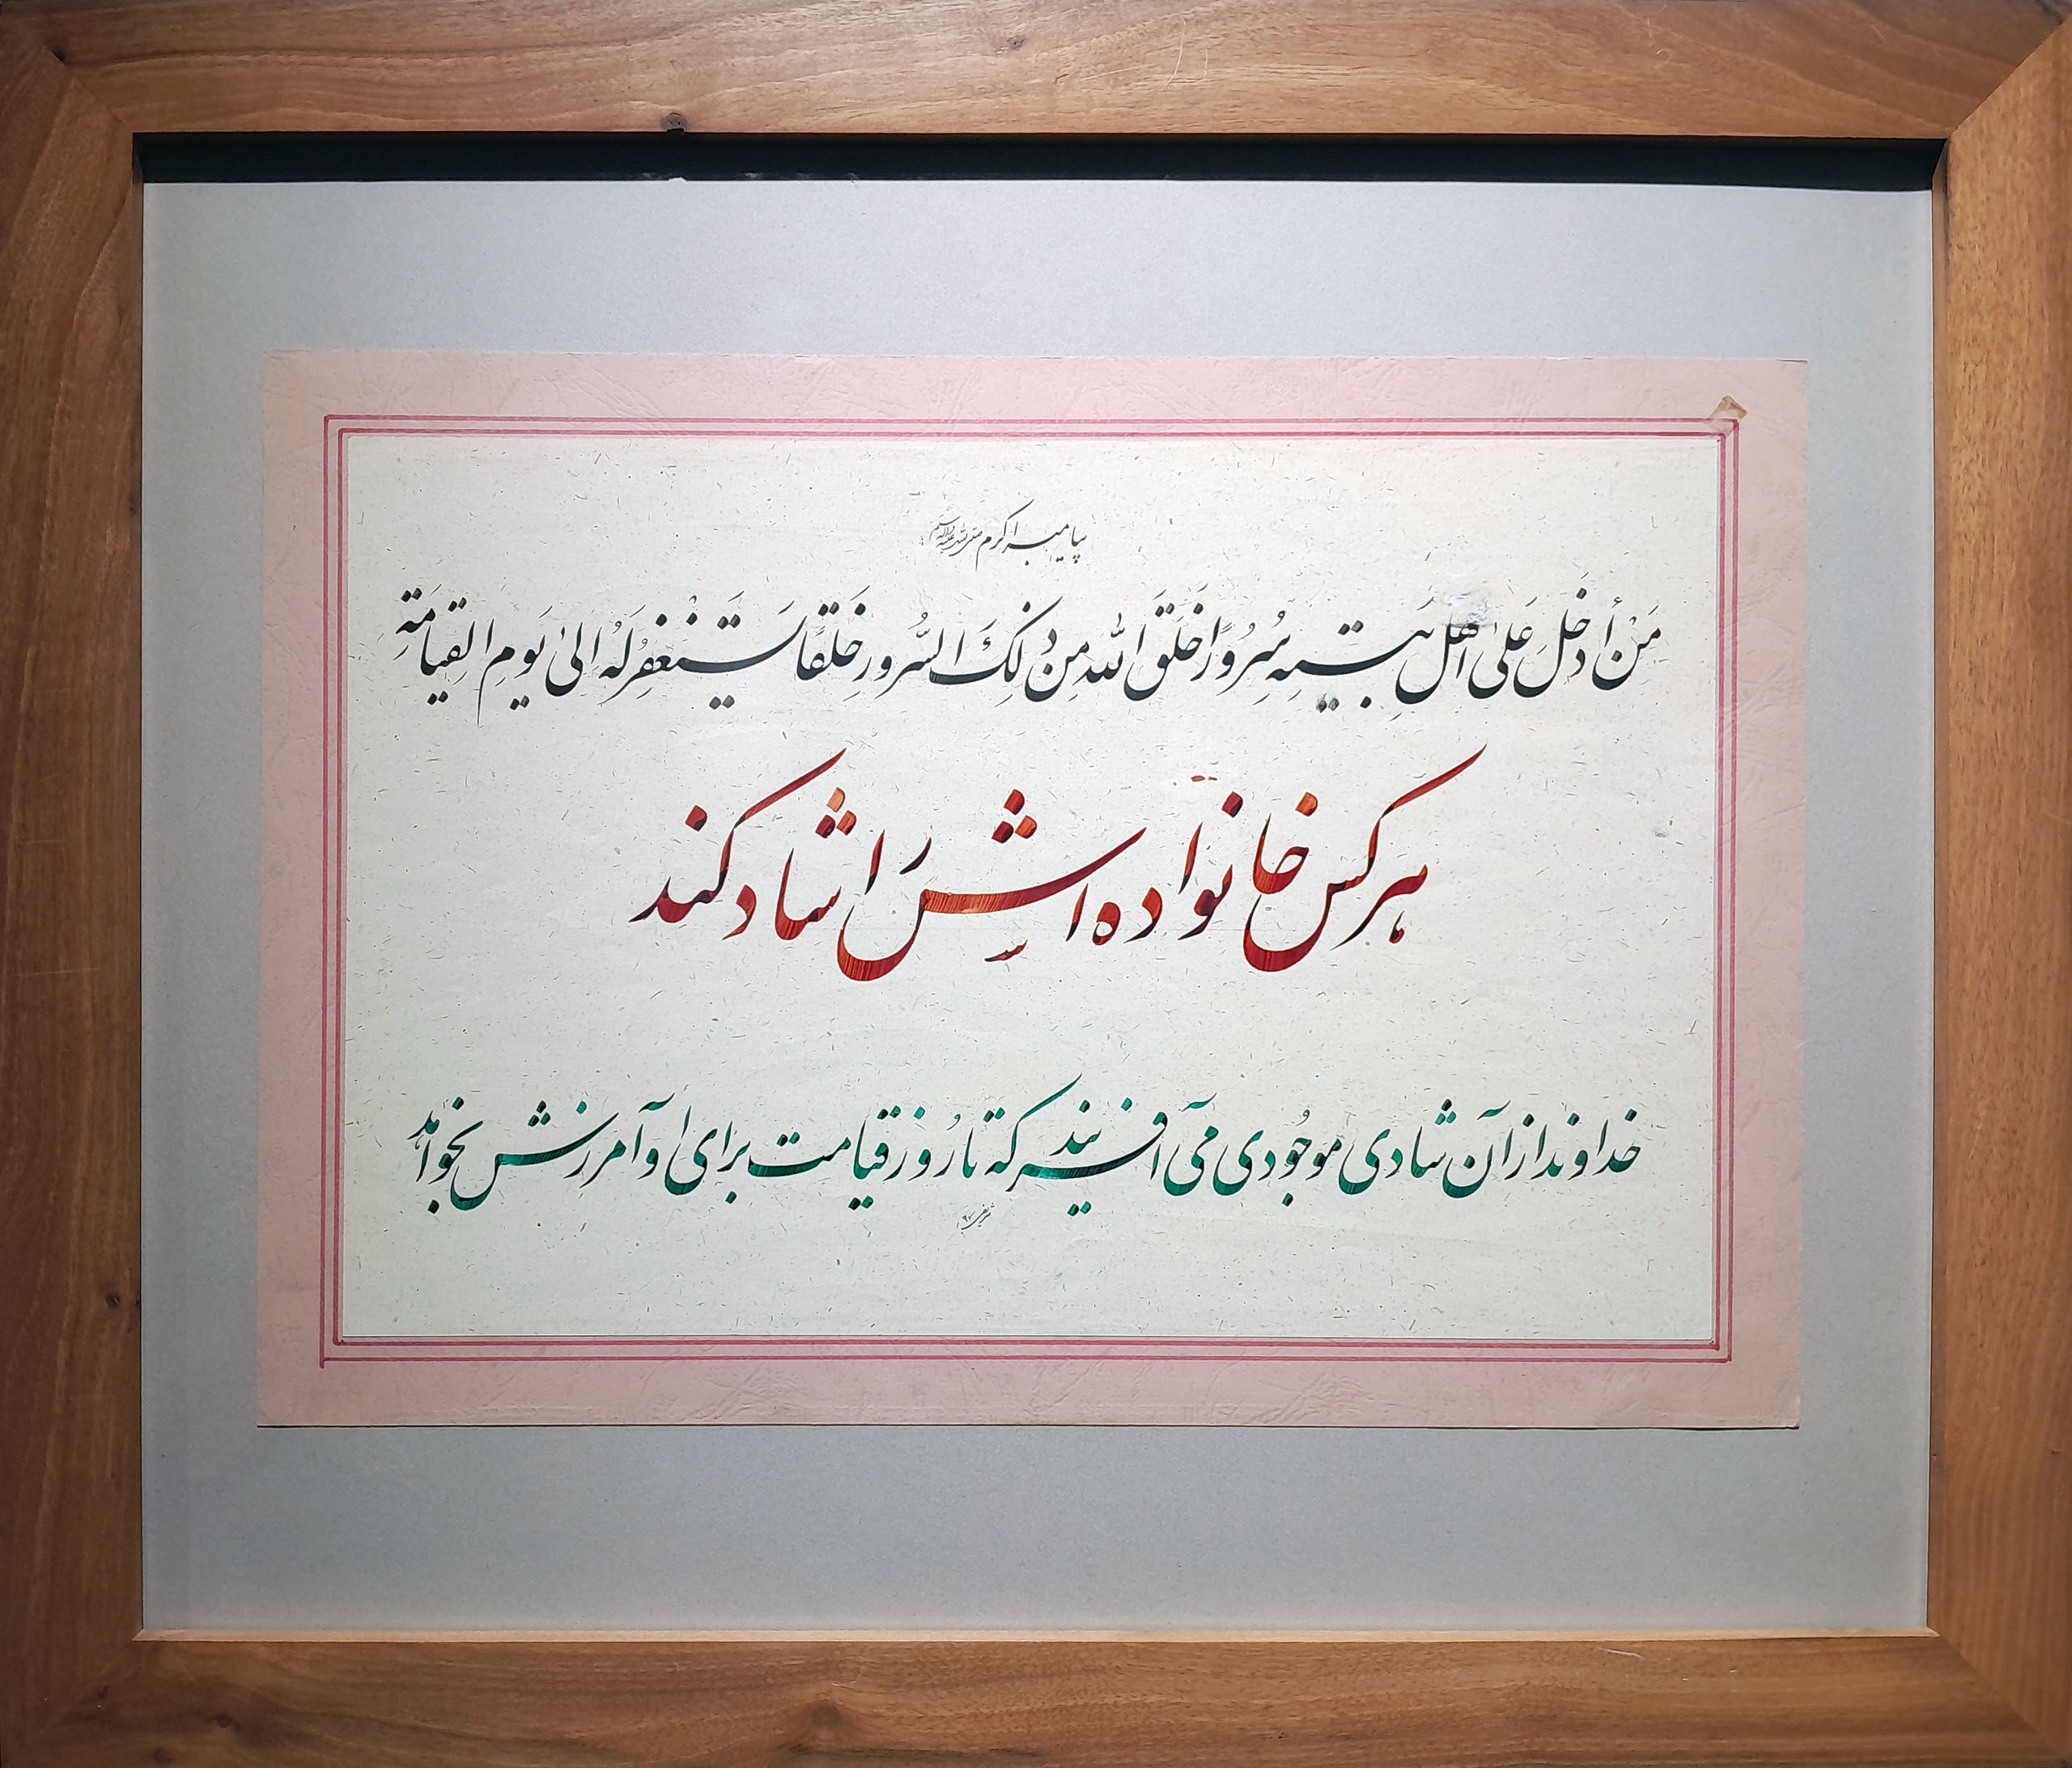 پیامبر اکرم صلی الله علیه و آله و سلم
مَنْ أَدخَلَ عَلیٰ اَهلِ بَیتِهِ سُرُورًا خَلَقَ اللهُ مِن ذٰلِکَ السُّرورِ خَلقًا یَستَغفِرُ لَهُ اِلیٰ یَومِ القِیامَةِ
هر کس خانواده اش را شاد کند
خداوند از آن شادی موجُودی می آفریند که تا رُوز قیامت برای او آمرزش بخواهد
شریفی